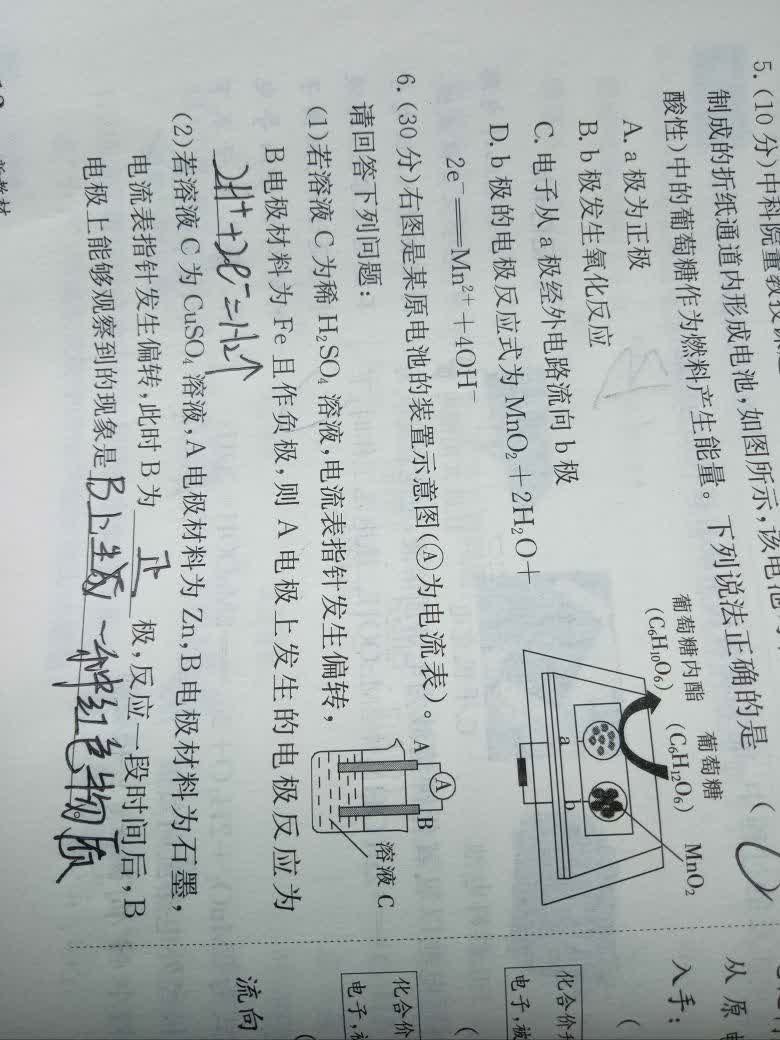 5.(10分)中科院董
制成的折纸通道内形成电池,如图所示,该电池
酸性)中的葡萄糖作为燃料产生能量。下列说法正确的是 (
C
A.a极为正极
B.b极发生氧化反应
C.电子从a极经外电路流向b极
D.b极的电极反应式为MnO₂+2H₂O+
2e⁻══Mn²⁺+4OH⁻
葡萄糖内酯
(C₆H₁₀O₆)
葡萄糖
(C₆H₁₂O₆)
MnO₂
a
b
6.(30分)右图是某原电池的装置示意图(Ⓐ为电流表)。
请回答下列问题:
(1)若溶液C为稀H₂SO₄溶液,电流表指针发生偏转,
B电极材料为Fe且作负极,则A电极上发生的电极反应为
2H⁺+2e⁻=H₂↑
A
A
B
溶液C
(2)若溶液C为CuSO₄溶液,A电极材料为Zn,B电极材料为石墨,
电流表指针发生偏转,此时B为 正 极,反应一段时间后,B
电极上能够观察到的现象是 B上生成一种红色物质
从原
入手:
(
化合价升
电子,被
(
化合价
电子,
(
流向
新教材